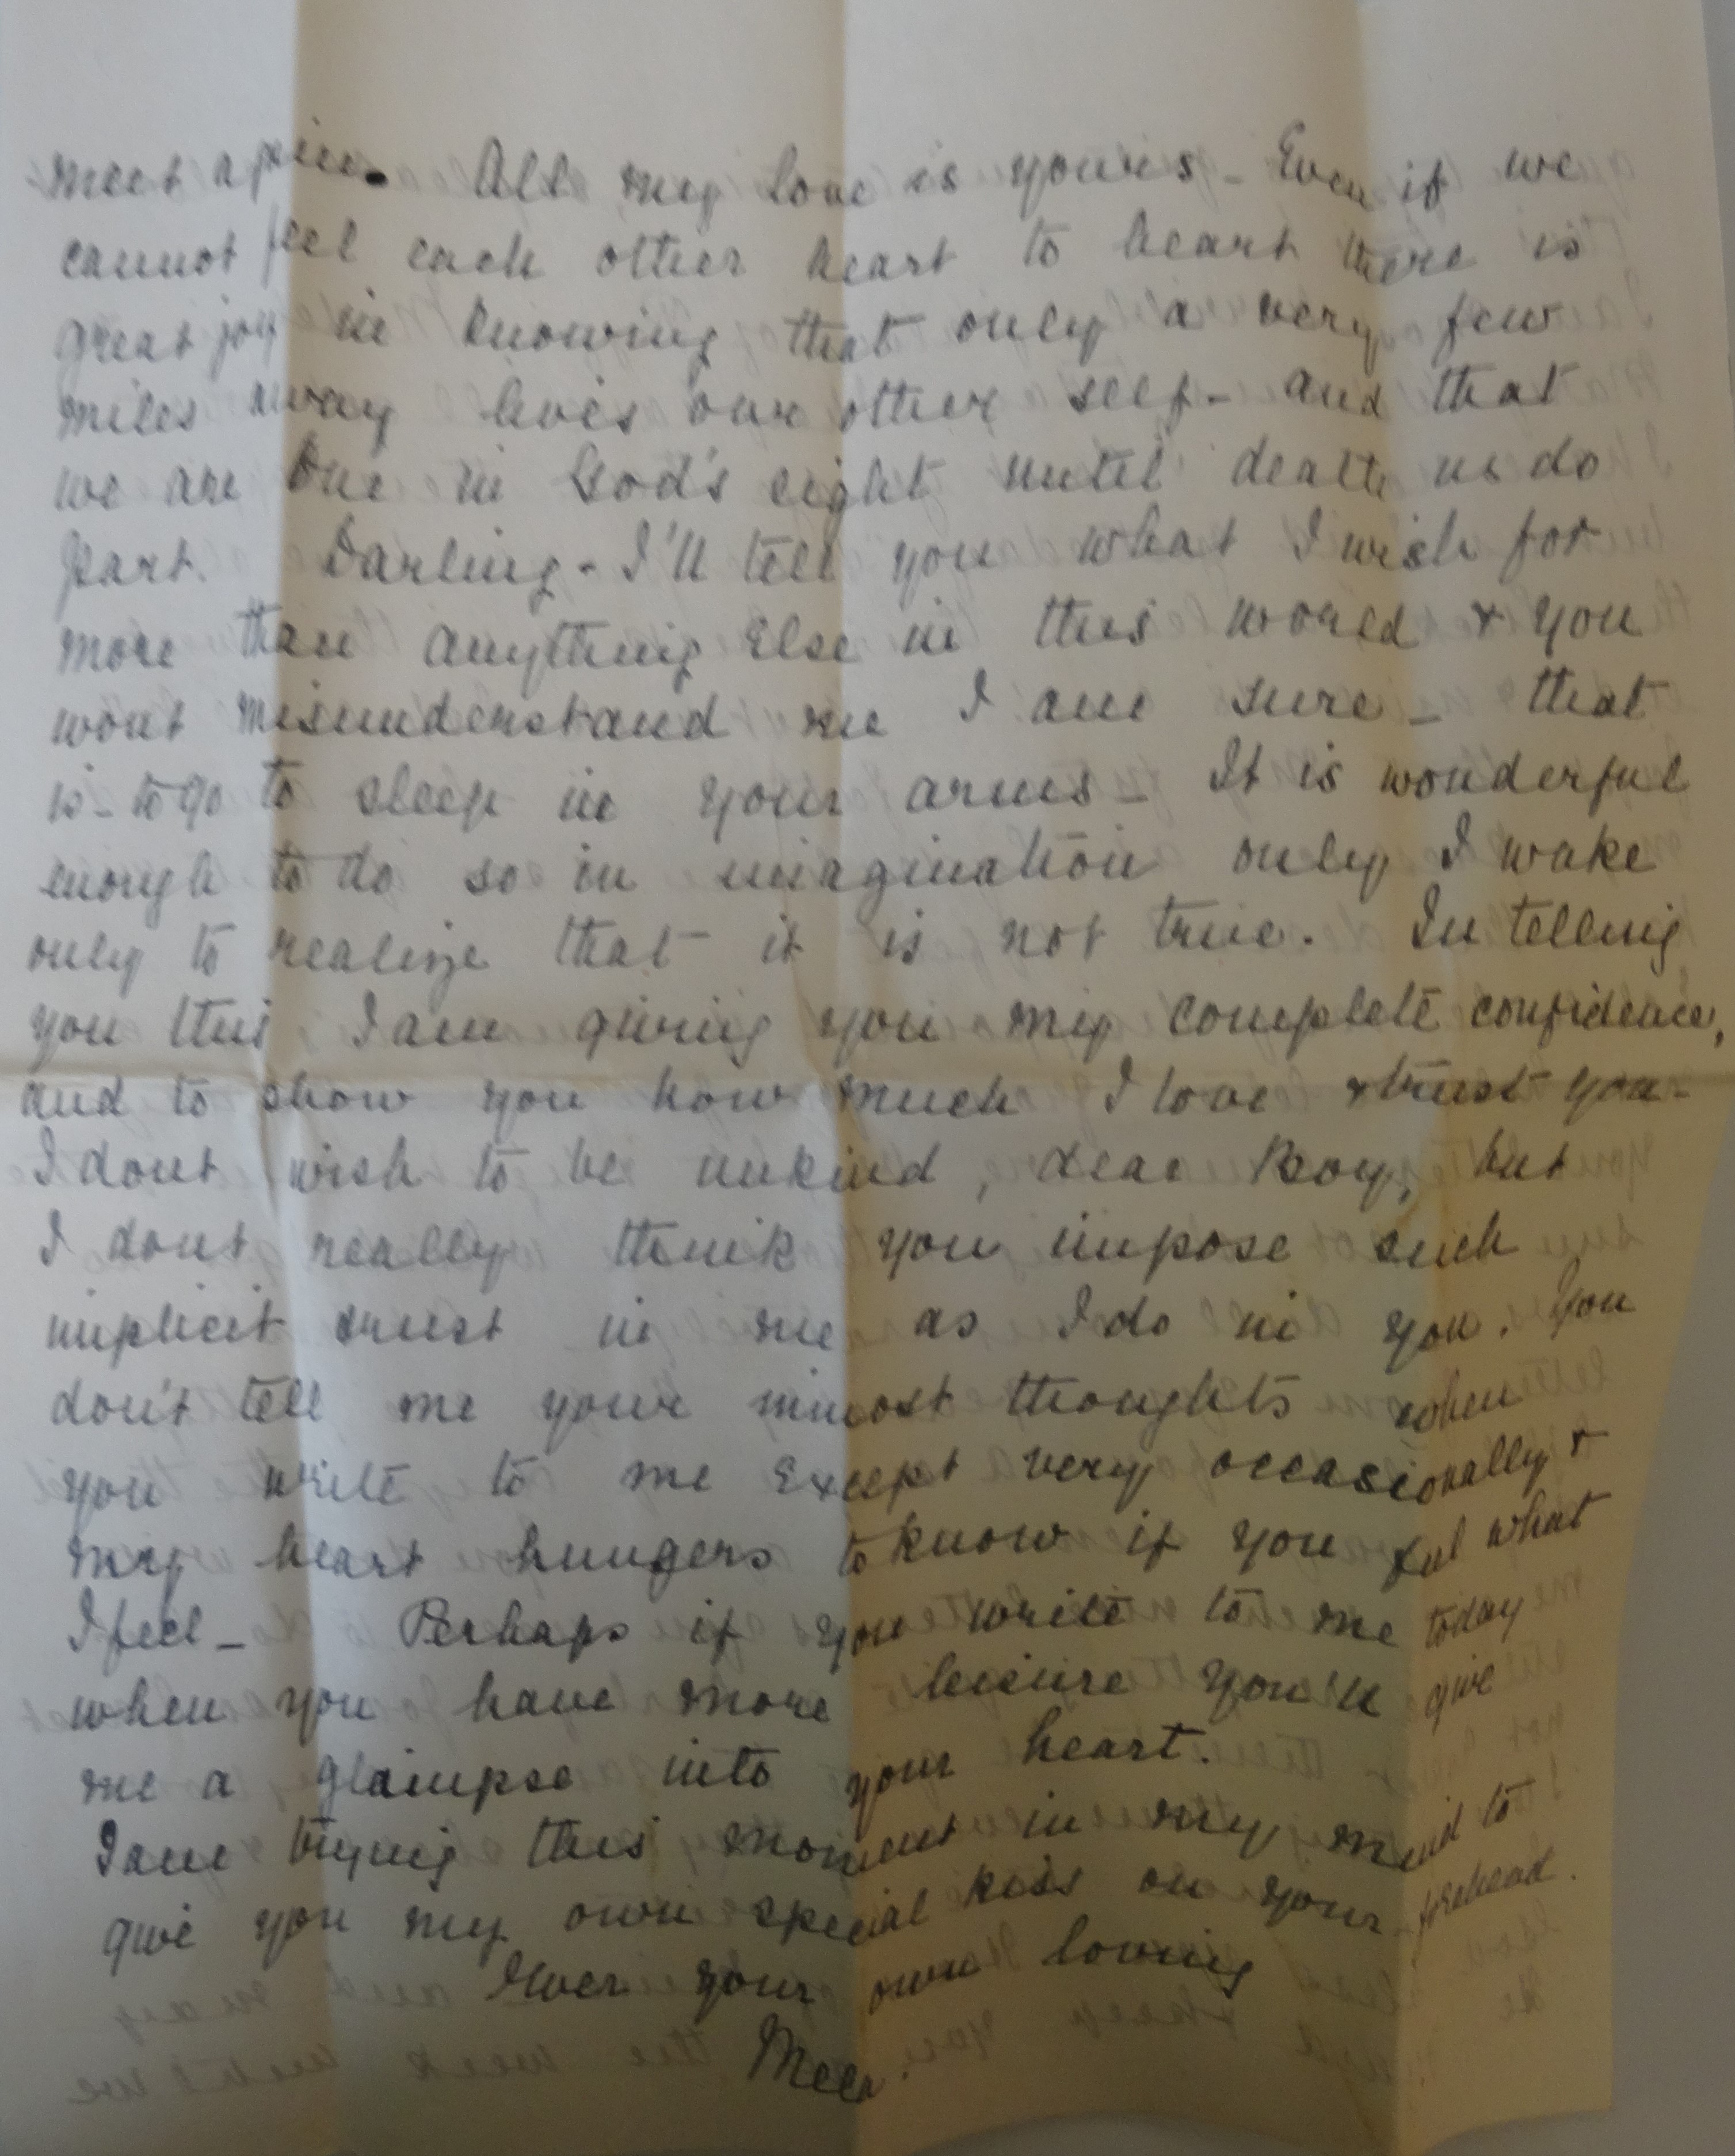 meet again. All my love is yours - Even if we
cannot feel each other heart to heart there is
great joy in knowing that only a very few
miles away lives our other self - and that
we are One in God's sight until death us do
part. Darling - I'll tell you what I wish for
more than anything Else in this world & you
wont misunderstand me I am sure - that
is - to go to sleep in your arms - It is wonderful
enough to do so in imagination only I wake
only to realize that it is not true. In telling
you this I am giving you my complete confidence,
and to show you how much I love & trust you -
I dont wish to be unkind, dear Boy, but
I dont really think you impose such
implicit trust in me as I do in you. You
don't tell me your inmost thoughts when
you write to me Except very occasionally &
my heart hungers to know if you feel what
I feel - Perhaps if you write to me today
when you have more leisure you'll give
me a glaimpse into your heart.
I am trying this moment in my mind to
give you my own special kiss on your forehead.
Ever your own loving